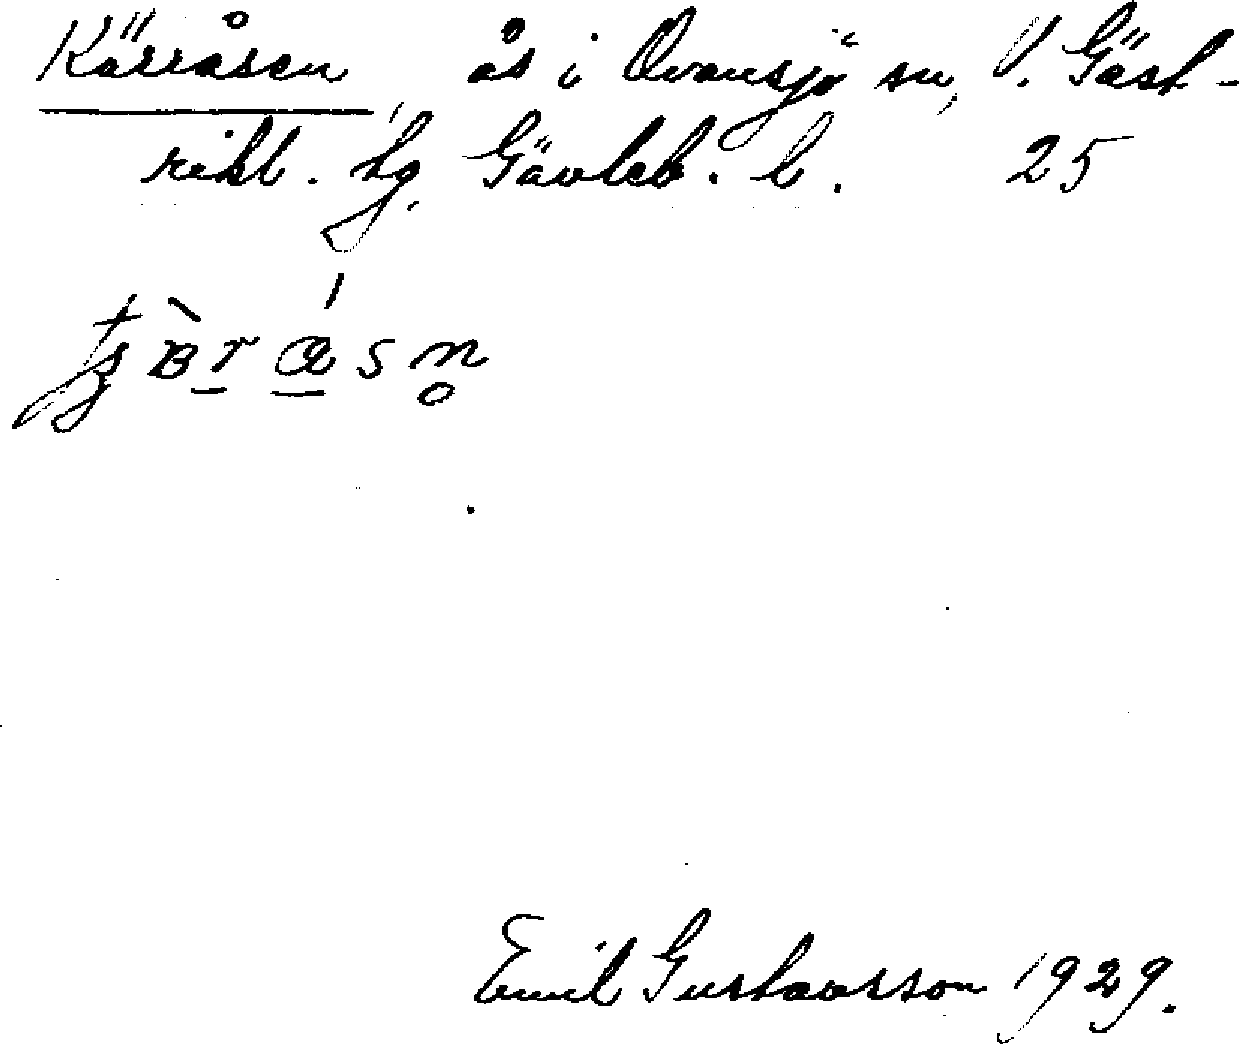 Kärråsen, ås i Ovansjö sn, V. Gäst-
rikl. hg. Gävleb. l. 25
Emil Gustavsson 1929.